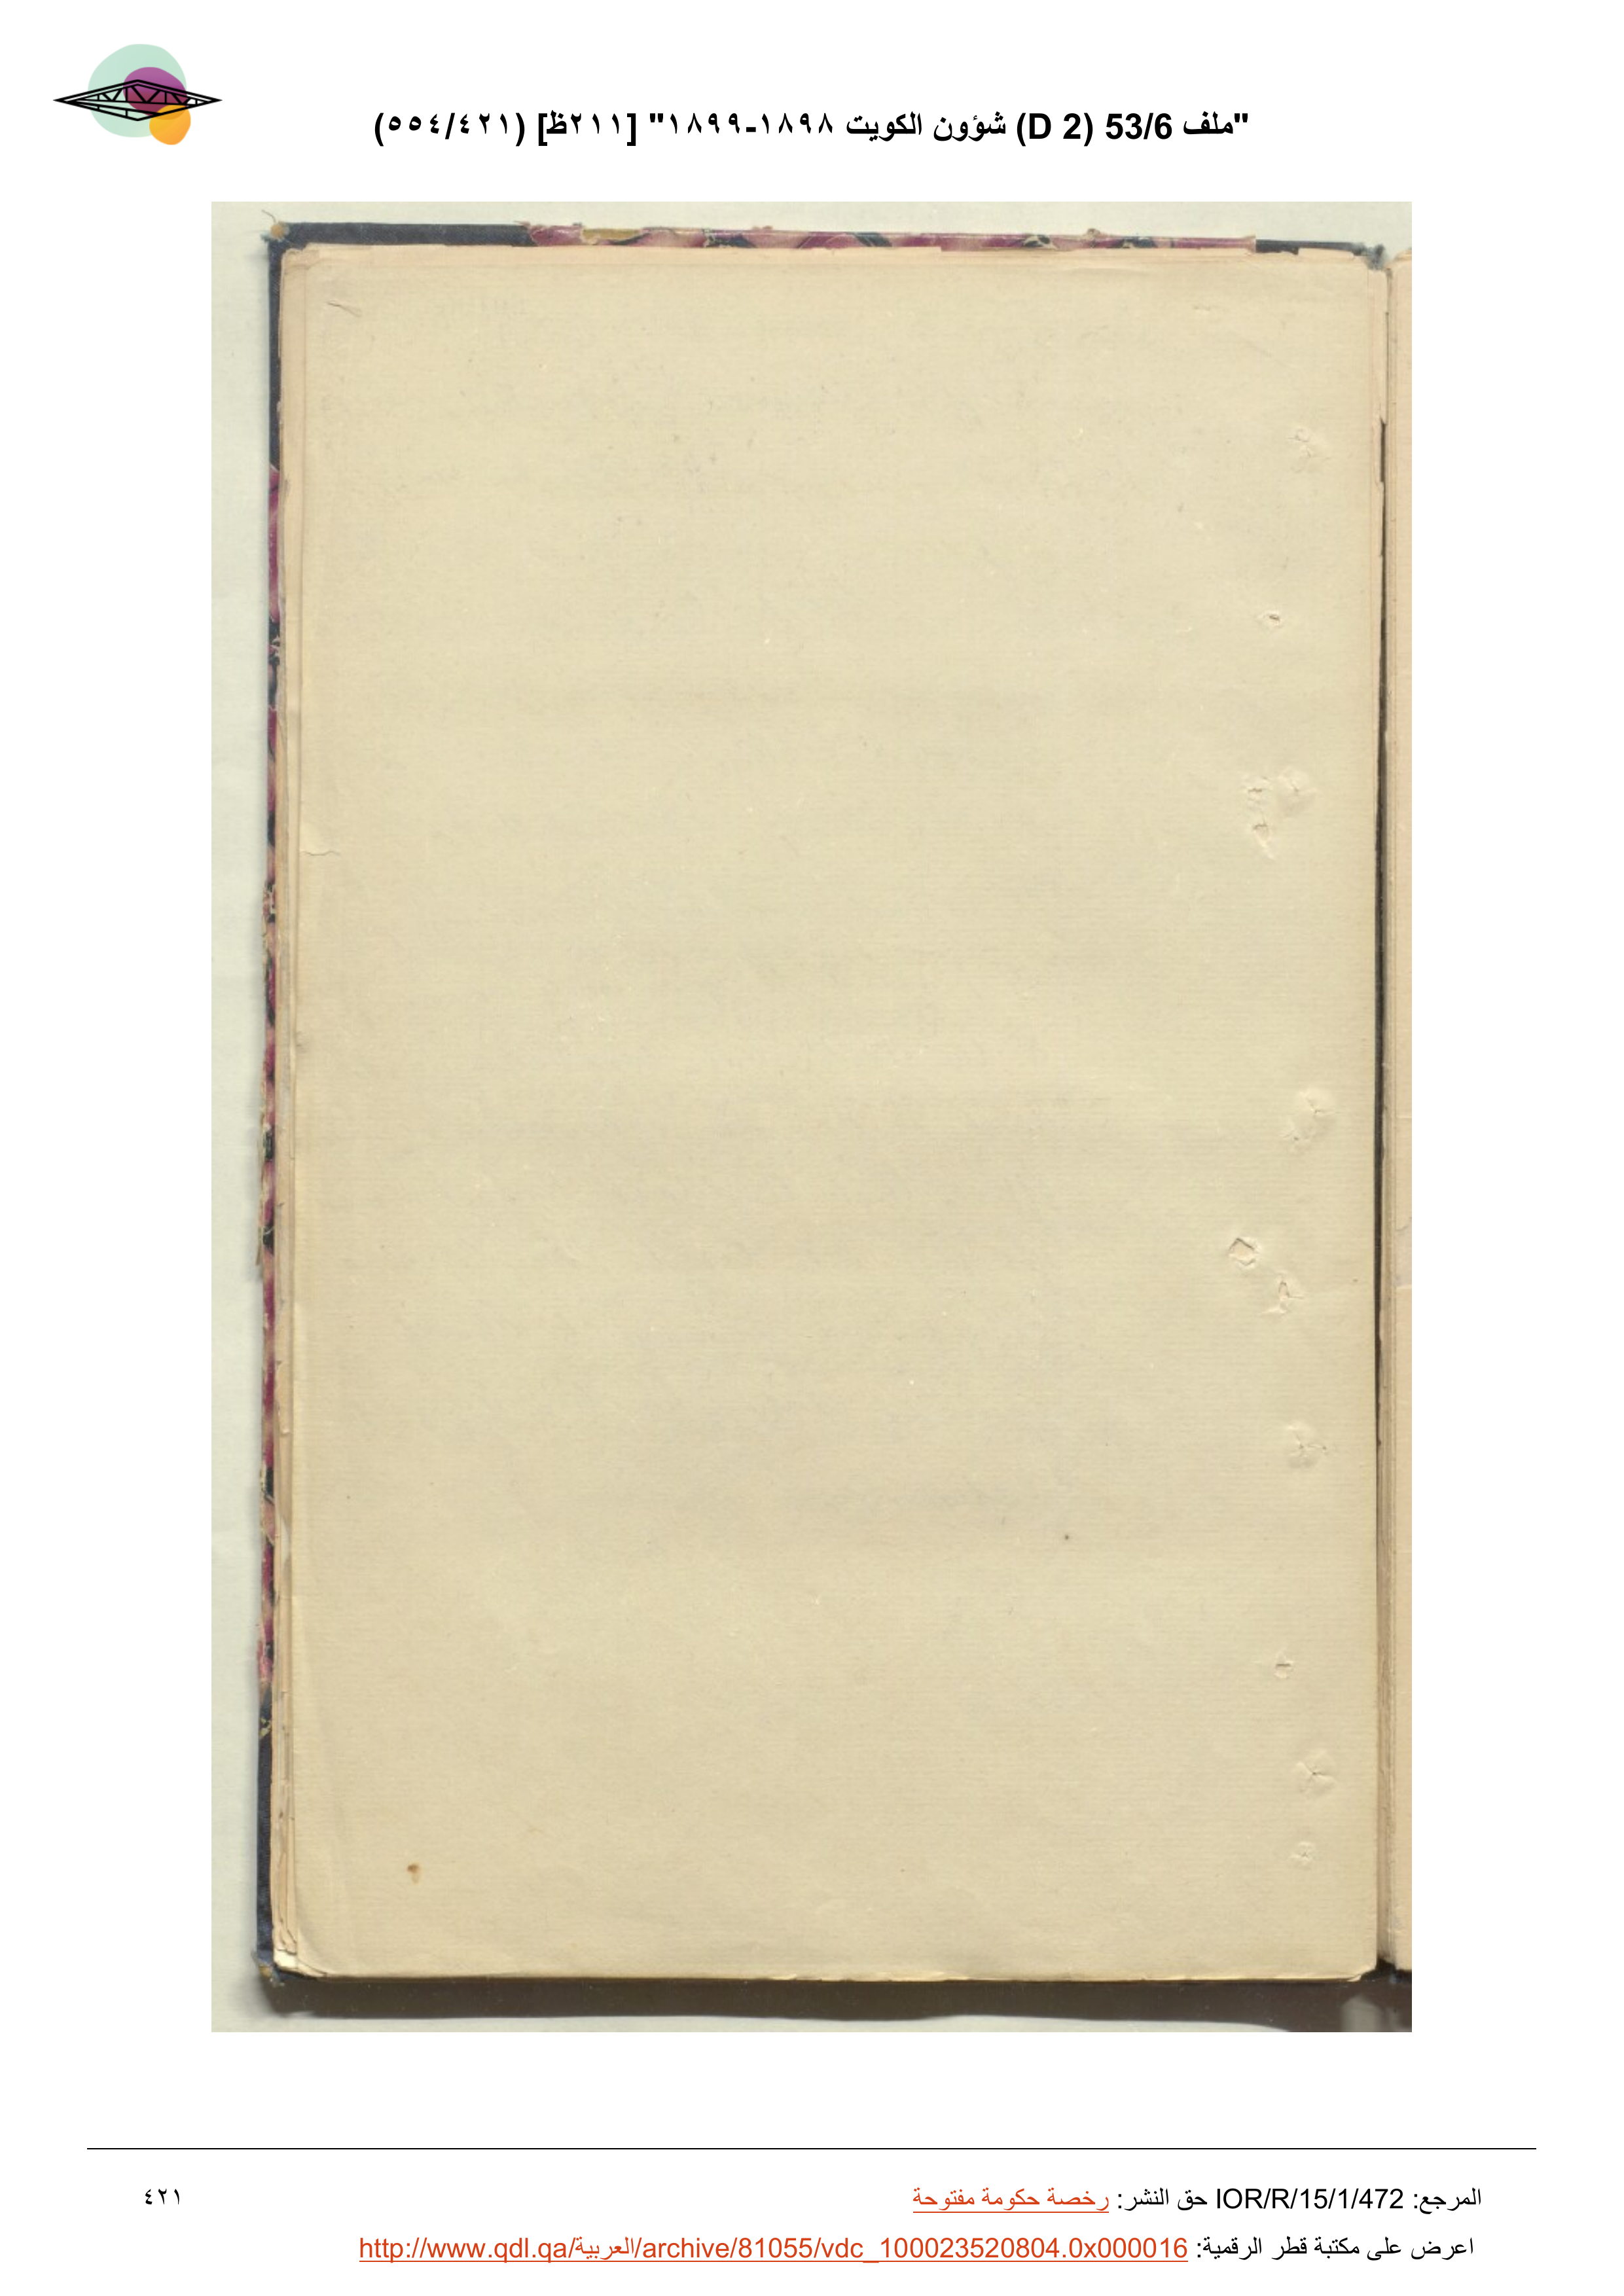 "ملف 53/6 (D 2) شؤون الكويت ١٨٩٨-١٨٩٩" [٢١١ظ] (٥٥٤/٤٢١)
المرجع: IOR/R/15/1/472 حق النشر: رخصة حكومة مفتوحة
٤٢١
اعرض على مكتبة قطر الرقمية: http://www.qdl.qa/العربية/archive/81055/vdc_100023520804.0x000016